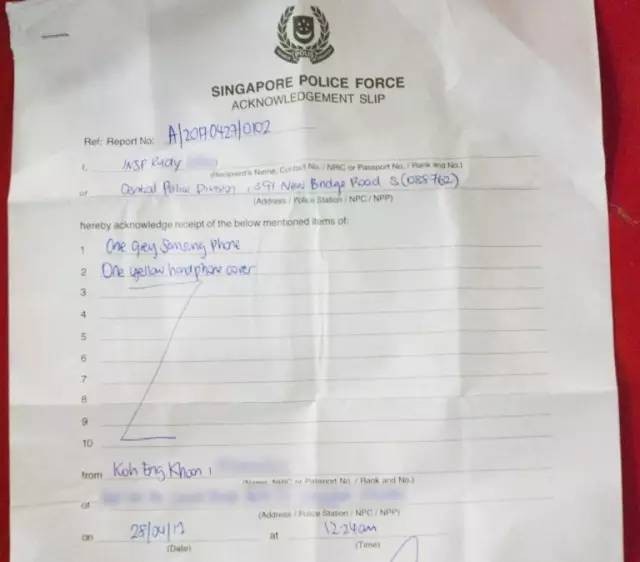 SINGAPORE POLICE FORCE
ACKNOWLEDGEMENT SLIP
Ref: Report No: A/20170427/0102
I, INSP Rudy
(Recipient's Name, Contact No. / NRIC or Passport No. / Rank and No.)
of Central Police Division, 391 New Bridge Road S(088762)
(Address / Police Station / NPC / NPP)
hereby acknowledge receipt of the below mentioned items of:
1 One grey Samsung Phone
2 One yellow handphone cover
3
4
5
6
7
8
9
10
from Koh Eng Khoon,
(Name, NRIC or Passport No. / Rank and No.)
of
(Address / Police Station / NPC / NPP)
on 28/04/17 at 12.24am
(Date) (Time)